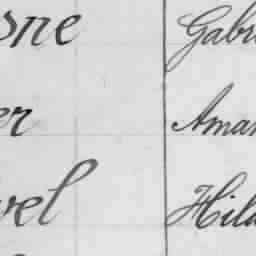 sne Gabri
er Aman
vel Hild